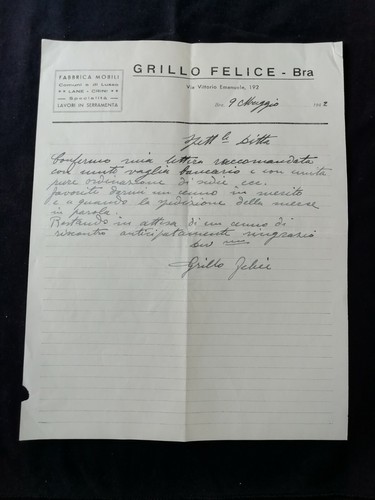 FABBRICA MOBILI
Comuni e di Lusso
LANE - CRINI
Specialità
LAVORI IN SERRAMENTA
GRILLO FELICE - Bra
Via Vittorio Emanuele, 192
Bra, 9 Maggio 1942
Spett le Ditta
Confermo mia lettera raccomandata
con unito vaglia bancario e con unita
pure ordinazione di sedie ecc.
favoriti darmi un cenno in merito
e a quando la spedizione della merce
in parola.
Restando in attesa di un cenno di
riscontro anticipatamente ringrazio
Grillo Felice